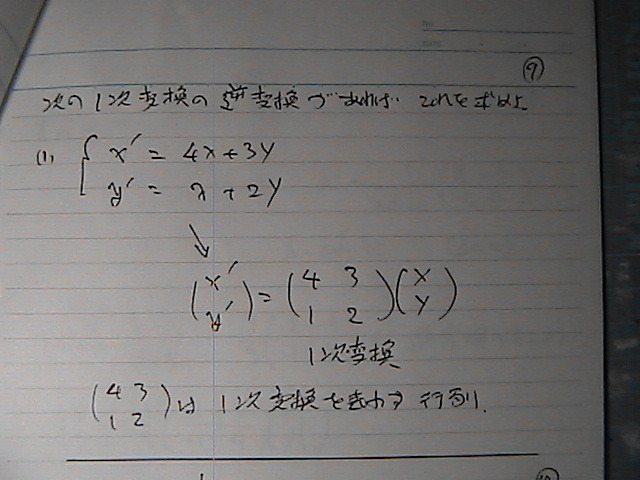 NO.
DATE
⑨
次の1次変換の逆変換があれば それを求めよ.
(1) { x' = 4x+3y
y' = x+2y
↓
(x' y') = (4 3 1 2)(x y)
1次変換
(4 3 1 2)は 1次変換を表わす 行列.